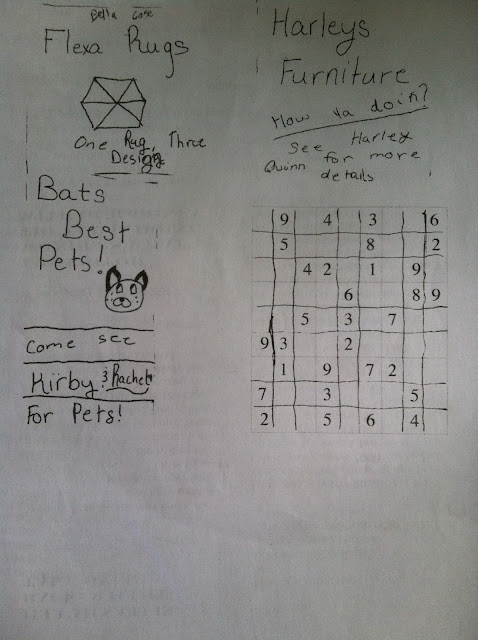 Bella
Flexa Rugs
One Rug, Three
Designs
Bats
Best
Pets!
Come see
Kirby & Rachel
For Pets!
Harleys
Furniture
How ya doin?
See Harley
Quinn for more
details
9 4 3 6
5 8 2
4 2 1 9
6 8 9
5 3 7
9 3 2
1 9 7 2
7 3 5
2 5 6 4